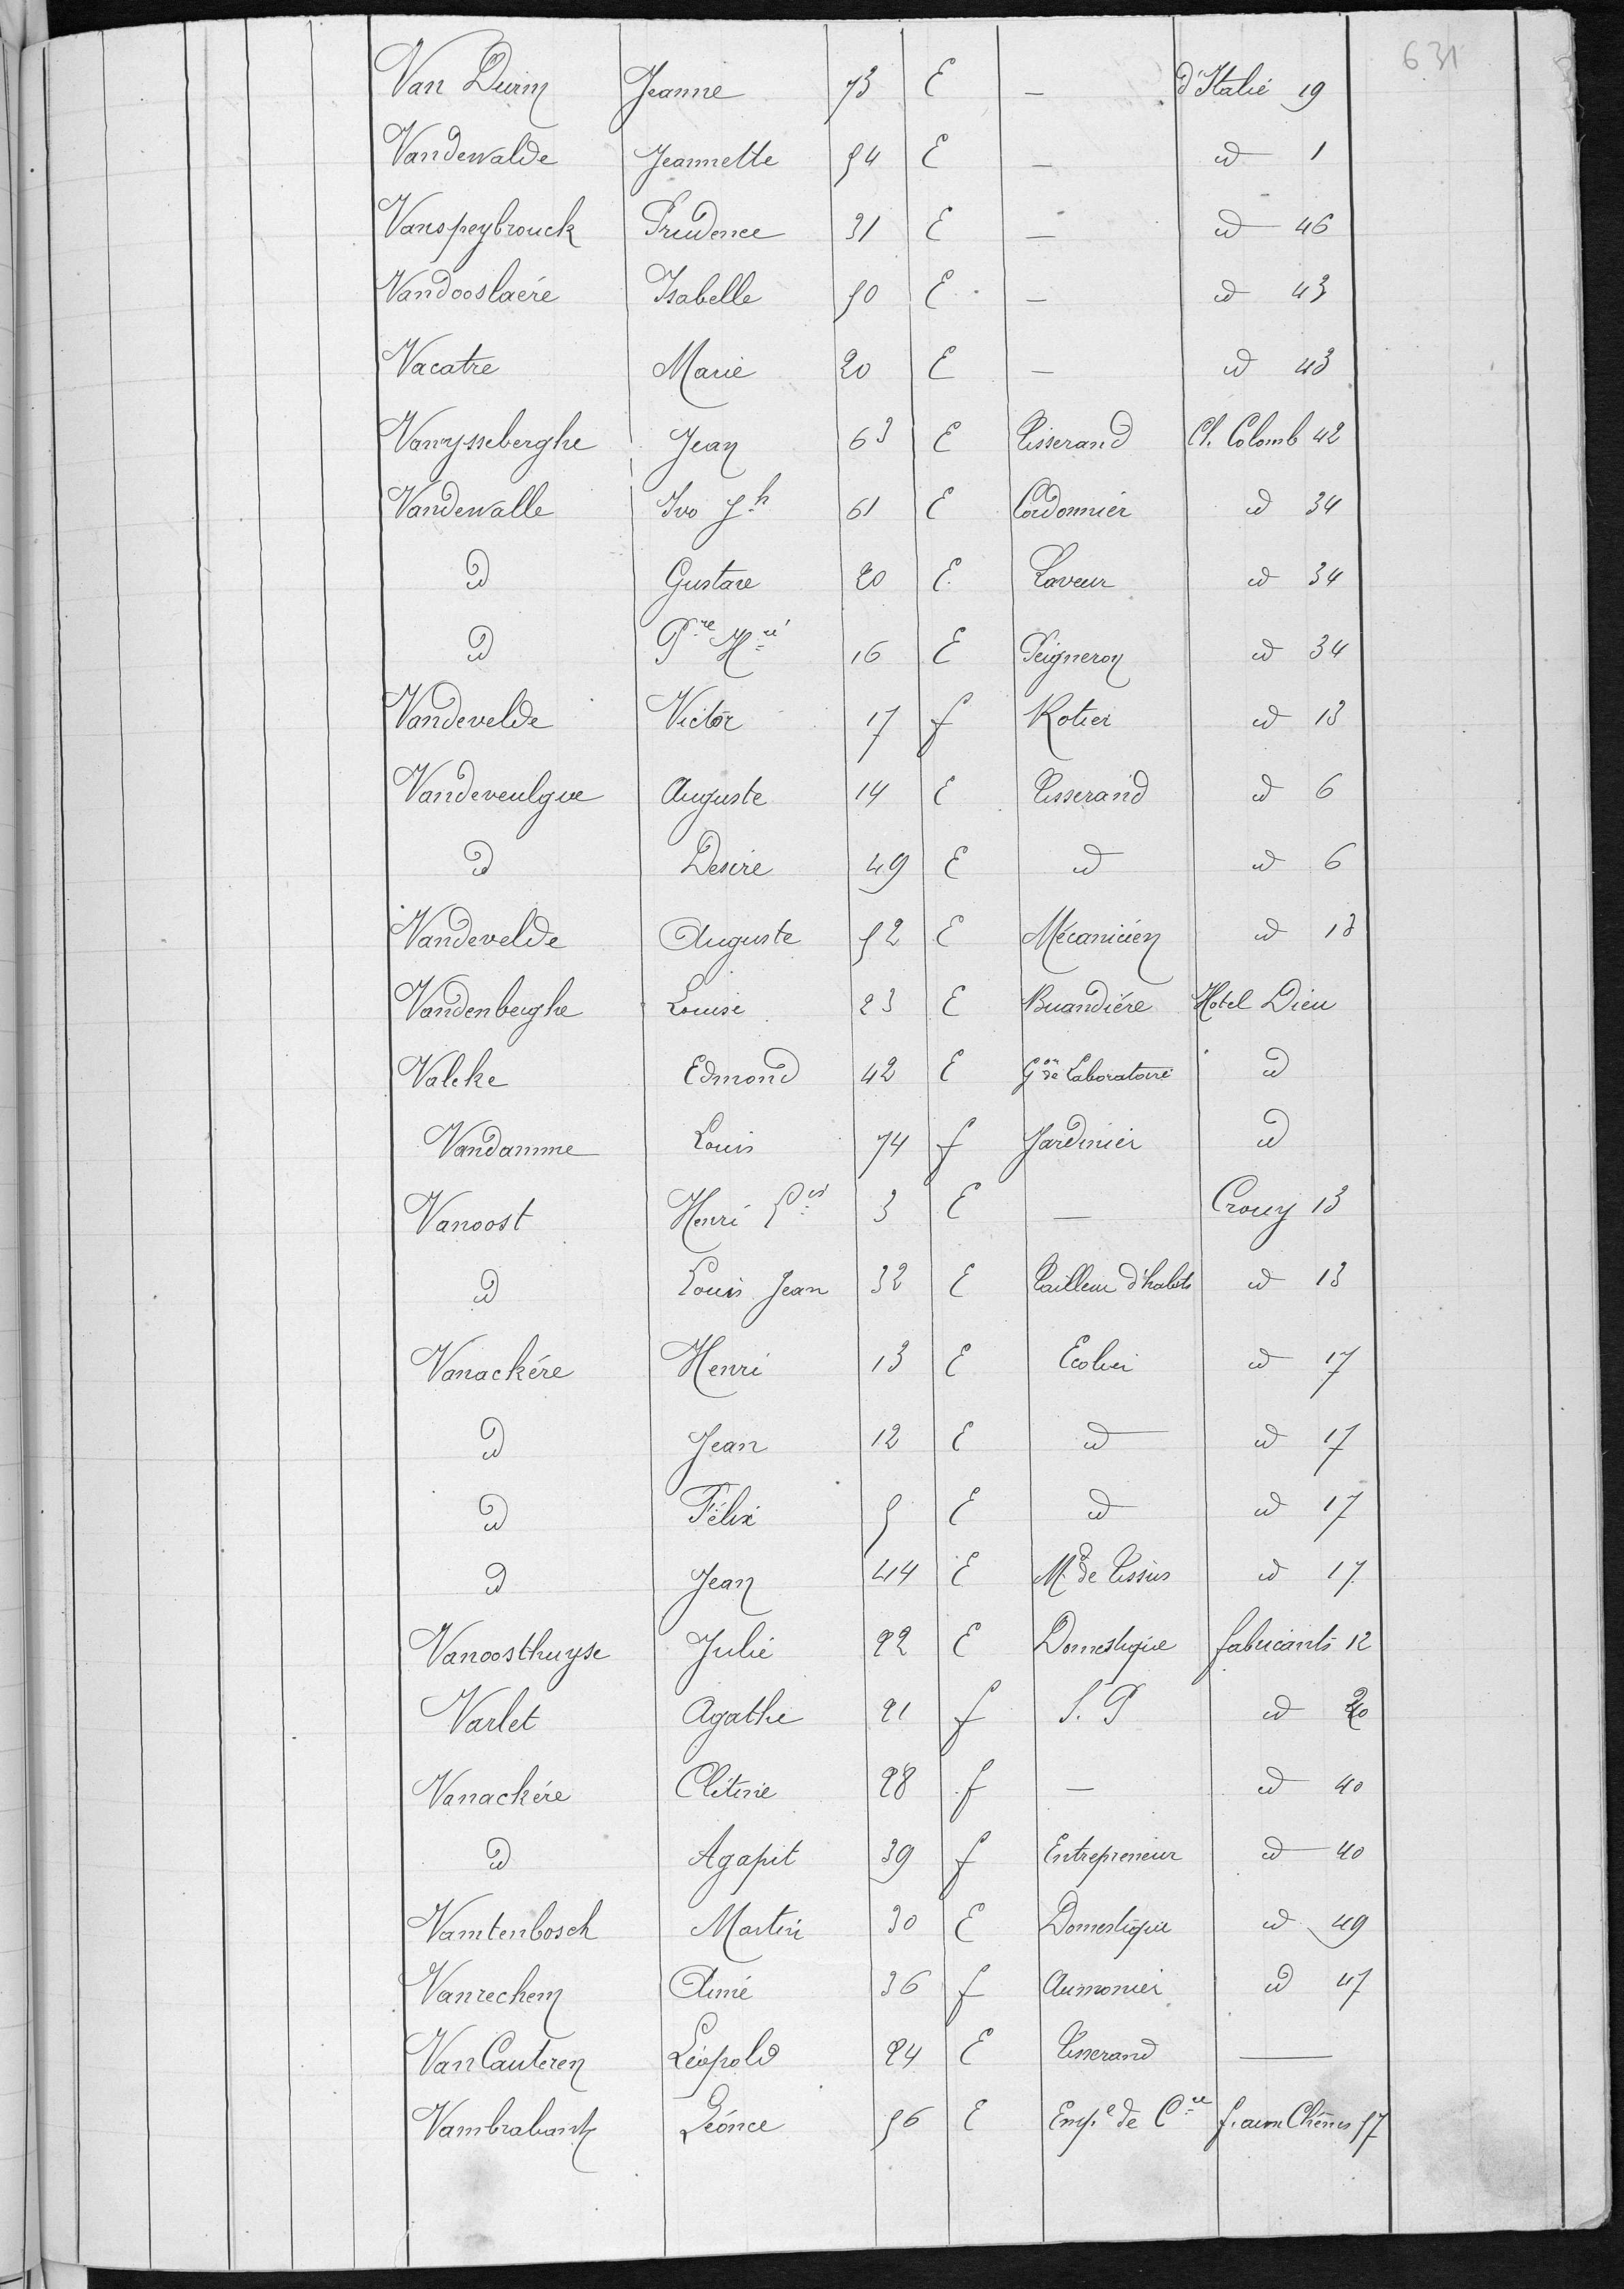 631
Van Durm Jeanne 73 E — d'Italie 19
Vandewalde Jeannette 54 E — id 1
Vanspeybrouck Prudence 31 E — id 46
Vandooslaére Isabelle 50 E — id 43
Vacatre Marie 20 E — id 43
Vanysseberghe Jean 63 E Tisserand Ch. Colomb 42
Vandewalle Ivo Jh 61 E Cordonnier id 34
id Gustave 20 E Laveur id 34
id Pre Hré 16 E Peigneron id 34
Vandevelde Victor 17 f Rotier id 13
Vandeveulgue Auguste 14 E Tisserand id 6
id Desire 49 E id id 6
Vandevelde Auguste 52 E Mécanicien id 13
Vandenberghe Louise 23 E Buandiére Hotel Dieu
Valcke Edmond 42 E Gon de Laboratoire id
Vandamme Louis 74 f Jardinier id
Vanoost Henri 3 E — Crouy 13
id Louis Jean 32 E Tailleur d'habits id 13
Vanackére Henri 13 E Ecolier id 17
id Jean 12 E id id 17
id Félix 5 E id id 17
id Jean 44 E Md de Tissus id 17
Vanoosthuyse Julie 22 E Domestique fabricants 12
Varlet Agathe 21 f S. P id 20
Vanackére Clitine 28 f — id 40
id Agapit 39 f Entrepreneur id 40
Vamtenbosch Martin 30 E Domestique id 49
Vanrechem Aimé 36 f Aumonier id 47
Van Cauteren Léopold 24 E Tisserand —
Vambrabant Léonce 56 E Empé de Cce f. aux Chênes 57